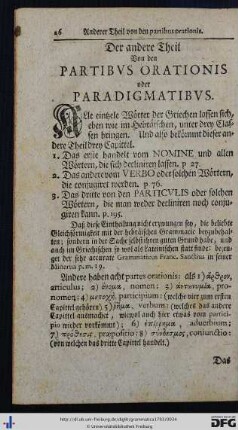 26 Anderer Theil von den partibus orationis.
Der andere Theil
Von den
PARTIBVS ORATIONIS
oder
PARADIGMATIBVS.
Alle eintzele Wörter der Griechen lassen sich,
eben wie im Hebräischen, unter drey Clas-
sen bringen. Und also bekömmt dieser an-
dere Theil drey Capittel.
1. Das erste handelt vom NOMINE und allen
Wörtern, die sich decliniren lassen. p. 27
2. Das andere vom VERBO oder solchen Wörtern,
die conjugiret werden. p. 76.
3. Das dritte von den PARTICVLIS oder solchen
Wörtern, die man weder decliniren noch conju-
giren kann. p. 195.
Daß diese Eintheilung nicht erzwungen sey, die beliebte
Gleichförmigkeit mit der hebräischen Grammatic beyzubehal-
ten; sondern in der Sache selbst ihren guten Grund habe, und
auch im Griechischen so wol als Lateinischen statt finde: bezeu-
get der sehr accurate Grammaticus Franc. Sanctius in seiner
Minerva p. m. 19.
Andere haben acht partes orationis: als 1) ἄρθρον,
articulus; 2) ὄνομα, nomen; 3) ἀντωνυμία, pro-
nomen; 4) μετοχή, participium: (welche vier zum ersten
Capittel gehören) 5) ῥῆμα, verbum: (welches das andere
Capittel ausmachet, wiewol auch hier etwas vom partici-
pio wieder vorkömmt;) 6) ἐπίῤῥημα, adverbium;
7) πρόθεσις, præpositio; 8) σύνδεσμος, conjunctio:
(von welchen das dritte Capittel handelt.)
Das
http://dl.ub.uni-freiburg.de/diglit/grammatica1783/0034
© Universitätsbibliothek Freiburg
DFG